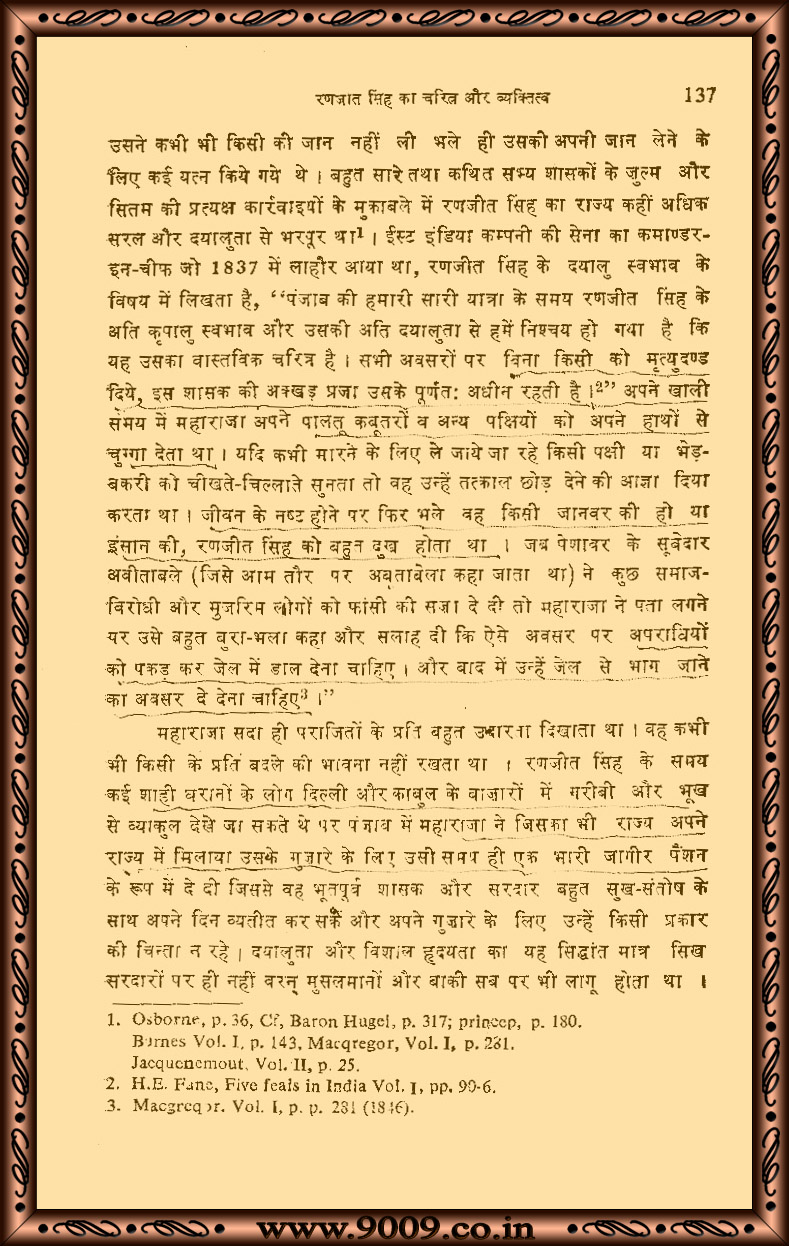 रणजात सिंह का चरित्र और व्यक्तित्व 137
उसने कभी भी किसी की जान नहीं ली भले ही उसकी अपनी जान लेने के
लिए कई यत्न किये गये थे । बहुत सारे तथा कथित सभ्य शासकों के जुल्म और
सितम की प्रत्यक्ष कार्रवाइयों के मुकाबले में रणजीत सिंह का राज्य कहीं अधिक
सरल और दयालुता से भरपूर था¹ । ईस्ट इंडिया कम्पनी की सेना का कमाण्डर-
इन-चीफ जो 1837 में लाहौर आया था, रणजीत सिंह के दयालु स्वभाव के
विषय में लिखता है, “पंजाब की हमारी सारी यात्रा के समय रणजीत सिंह के
अति कृपालु स्वभाव और उसकी अति दयालुता से हमें निश्चय हो गया है कि
यह उसका वास्तविक चरित्र है । सभी अवसरों पर बिना किसी को मृत्युदण्ड
दिये, इस शासक की अक्खड़ प्रजा उसके पूर्णत: अधीन रहती है ।²” अपने खाली
समय में महाराजा अपने पालतू कबूतरों व अन्य पक्षियों को अपने हाथों से
चुग्गा देता था । यदि कभी मारने के लिए ले जाये जा रहे किसी पक्षी या भेड़-
बकरी को चीखते-चिल्लाते सुनता तो वह उन्हें तत्काल छोड़ देने की आज्ञा दिया
करता था । जीवन के नष्ट होने पर फिर भले वह किसी जानवर की हो या
इंसान की, रणजीत सिंह को बहुत दुख होता था । जब पेशावर के सूबेदार
अवीताबले (जिसे आम तौर पर अबूताबेला कहा जाता था) ने कुछ समाज-
विरोधी और मुजरिम लोगों को फांसी की सजा दे दी तो महाराजा ने पता लगने
पर उसे बहुत बुरा-भला कहा और सलाह दी कि ऐसे अवसर पर अपराधियों
को पकड़ कर जेल में डाल देना चाहिए । और बाद में उन्हें जेल से भाग जाने
का अवसर दे देना चाहिए³ ।”
महाराजा सदा ही पराजितों के प्रति बहुत उदारता दिखाता था । वह कभी
भी किसी के प्रति बदले की भावना नहीं रखता था । रणजीत सिंह के समय
कई शाही घरानों के लोग दिल्ली और काबुल के बाज़ारों में गरीबी और भूख
से व्याकुल देखे जा सकते थे पर पंजाब में महाराजा ने जिसका भी राज्य अपने
राज्य में मिलाया उसके गुजारे के लिए उसी समय ही एक भारी जागीर पैंशन
के रूप में दे दी जिससे वह भूतपूर्व शासक और सरदार बहुत सुख-संतोष के
साथ अपने दिन व्यतीत कर सकें और अपने गुजारे के लिए उन्हें किसी प्रकार
की चिन्ता न रहे । दयालुता और विशाल हृदयता का यह सिद्धांत मात्र सिख
सरदारों पर ही नहीं वरन् मुसलमानों और बाकी सब पर भी लागू होता था ।
1. Osborne, p. 36, Cf, Baron Hugel, p. 317; princep, p. 180.
Burnes Vol. I, p. 143, Macqregor, Vol. I, p. 281.
Jacquenemout, Vol. II, p. 25.
2. H.E. Fane, Five feals in India Vol. I, pp. 90-6.
3. Macgregor. Vol. I, p. p. 281 (1846).
www.9009.co.in